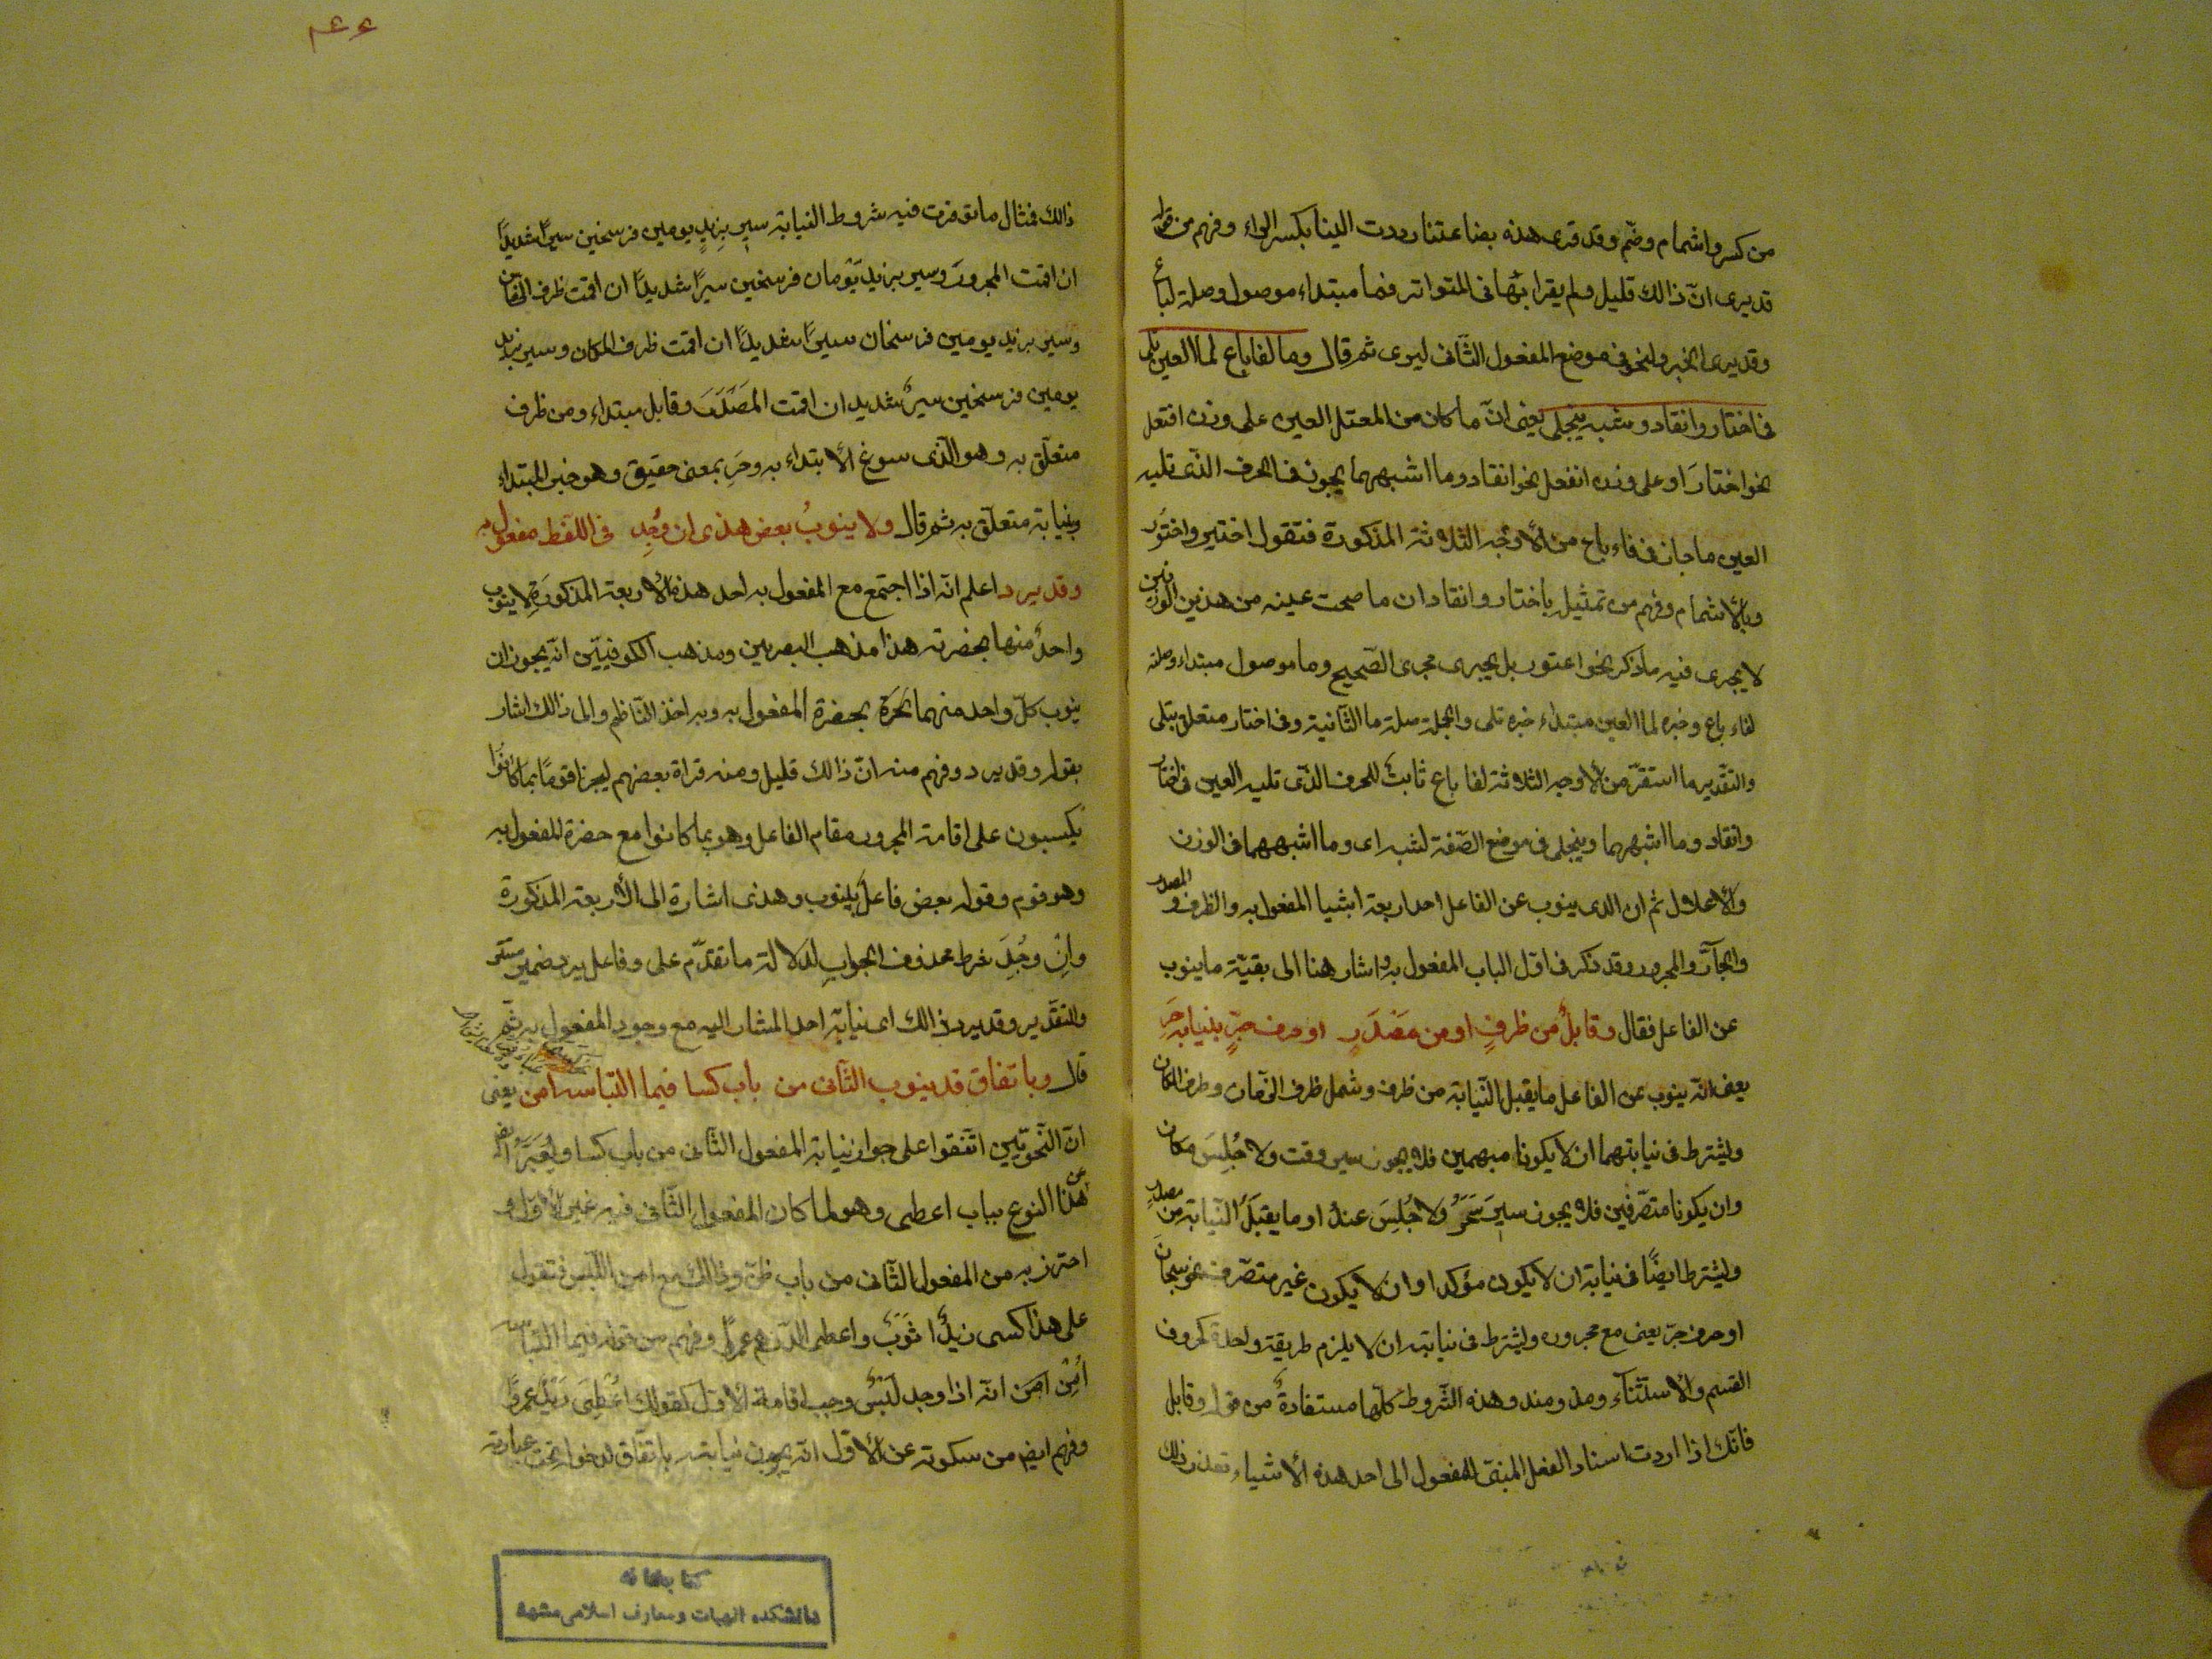 من كسر واشمام وضم وقد قرى هذه بضاعتنا ردت الينا بكسر الراء وفهم من قوله
قد يرى انّ ذالك قليل ولم يقرا بهما فى المتواتر فما مبتداء موصول وصلة لباع
وقد يرى الخبر ولنحو فى موضع المفعول الثّانى ليرى ثم قال وما لفا باع لما العين تلى
فى اختار وانقاد وشبه ينجلى يعنى انّ ما كان من المعتل العين على وزن افتعل
نحو اختارَ او على وزن انفعل نحو انقاد وما اشبههما يجوز فى الحرف الذّى تليه
العين ما جاز فى فاء باع من الأوجه الثلاثة المذكورة فتقول اختير واختُور
وبالأشمام وفهم من تمثيله باختار وانقاد ان ما صحت عينه من هذين الوزنين
لا يجرى فيه ما ذكر نحو اعتور بل يجرى مجرى الصّحيح وما موصول مبتداء وصلته
لفاء باع وخبره لما العين مبتداء خبره تلى والجملة صلة ما الثّانية وفى اختار متعلق بتلى
والتّقدير ما استقرّ من الأوجه الثلاثة لفا باع ثابتٌ للحرف الذّى تليه العين فى اختار
وانقاد وما اشبههما وينجلى فى موضع الصّفة لشبه اى وما اشبههما فى الوزن
والأعلال ثم ان الذى ينوب عن الفاعل احد اربعة اشيا المفعول به والظرف والمصدر
والجآرّ والمجرور وقد ذكر فى اوّل الباب المفعول به واشار هنا الى بقيّة ما ينوب
عن الفاعل فقال وقابلٌ من ظرفٍ او من مَصْدَرٍ او حرف جرٍّ بنيابة حَرِ
يعنى انّه ينوب عن الفاعل ما يقبل النّيابة من ظرف وشمل ظرف الزّمان وظرف المكان
ويشترط فى نيابتهما ان لا يكونا مبهمين فلا يجوز سير وقت ولا جُلِسَ مكان
وان يكونا متصّرفين فلا يجوز سِيرَ سَحَرُ ولا جُلِسَ عندُ او ما يقبَلُ النّيابة من مصدر
ويشترط ايضًا فى نيابته ان لا يكون مؤكدا وان لا يكون غير متصّرف نحو سبحانَ
او حرف جرّ يعنى مع مجروره ويشترط فى نيابته ان لا يلزم طريقة واحدة كحروف
القسم والاستثناء ومذ ومنذ وهذه الشّروط كلّها مستفادةٌ من قوله وقابل
فانّك اذا اردت اسناد الفعل المبنىّ للمفعول الى احد هذه الأشياء تعذر ذلك
ذالك فمثال ما توفرت فيه شروط النيابة سير بزيدٍ يومين فرسخين سيرًا شديدًا
ان اقمت المجرورَ وسير بزيد يَوْمان فرسخين سيرًا شديدًا ان اقمت ظرف الزّمان
وسير بزيد يومين فرسخان سيرًا شديدًا ان اقمت ظرف المكان وسير بزيد
يومين فرسخين سيرٌ شديد ان اقمت المَصْدَرَ وقابل مبتداء ومن ظرف
متعلّق به وهو الّذى سوغ الأبتداء به وحَرِ بمعنى حقيق وهو خبر المبتداء
وبنيابة متعلّق به ثم قال ولا ينوبُ بعض هذى ان وُجِد فى اللّفظ مفعول به
وقد يرد اعلم انّه اذا اجتمع مع المفعول به احد هذه الأربعة المذكورَة لا ينوب
واحدٌ منها بحضرته هذا مذهب البصريين ومذهب الكوفيّين انّه يجوز ان
ينوب كلّ واحد منهما بحضرة المفعول به وبه اخذ النّاظم والى ذالك اشار
بقوله وقد يرد وفهم منه انّ ذالك قليل ومنه قراة بعضهم ليجزا قومًا بما كانُوا
يكسبون على اقامة المجرور مقام الفاعل وهو بما كانوا مع حضرة المفعول به
وهو قوم وقوله بعض فاعلٌ بينوب وهذى اشارة الى الأربعة المذكورة
وانْ وجُدَ شرط محذوف الجوابِ لدلالة ما تقدّم على وفاعل يرد ضمير مستتر
والتقّدير وقد يرد ذالك اى نيابة احد المشار اليه مع وجود المفعول به ثمّ
قال وباتفاق قد ينوب الثّانى من باب كسا فيما التباسه امن يعنى
انّ النّحويّين اتّفقوا على جواز نيابة المفعول الثّانى من باب كسا ويُعَبَّرُ ايضا
عن هذا النوع بباب اعطى وهو لما كان المفعول الثّانى فيه غير الأوّل و
احترز به من المفعول الثّانى من باب ظنّ وذالك مع امن اللّبس فتقول
على هذا كسى زيدًا ثَوْبٌ واعطى الدّرهم عمرًا وفهم من قوله فيما التباسه
أُمِنْ امِنَ انّه اذا وجد لَبْسٌ وجب اقامة الأوّل كقولك اُعْطِىَ زَيْدٌ عمرًا
وفهم ايضا من سكوته عن الأوّل انّه يجوز نيابته باتفّاق لدخوله تحت عبارته
كتابخانه
دانشكده الهيات و معارف اسلامى مشهد